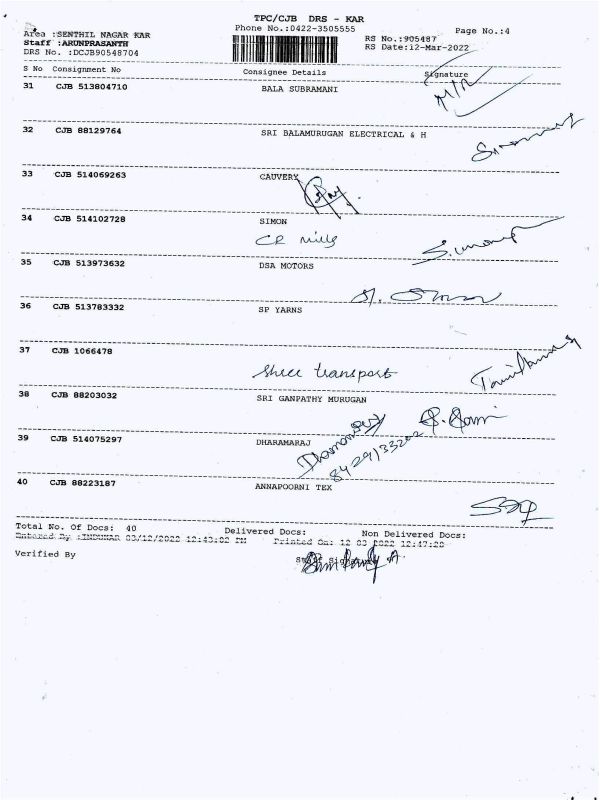 TPC/CJB DRS - KAR
Phone No.:0422-3505555
Page No.:4
Area :SENTHIL NAGAR KAR
RS No.:905487
Staff :ARUNPRASANTH
RS Date:12-Mar-2022
DRS No. :DCJB90548704
S No Consignment No Consignee Details Signature
31 CJB 513804710 BALA SUBRAMANI
32 CJB 88129764 SRI BALAMURUGAN ELECTRICAL & H
33 CJB 514069263 CAUVERY
34 CJB 514102728 SIMON
CR mills
35 CJB 513973632 DSA MOTORS
36 CJB 513783332 SP YARNS
37 CJB 1066478
Shree transport
38 CJB 88203032 SRI GANPATHY MURUGAN
39 CJB 514075297 DHARAMARAJ
40 CJB 88223187 ANNAPOORNI TEX
Total No. Of Docs: 40 Delivered Docs: Non Delivered Docs:
Entered By :INDUMAR 03/12/2022 12:43:02 PM Printed On: 12 03 2022 12:47:20
Verified By
Staff Signature